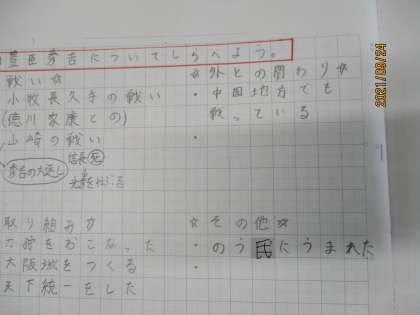 豊臣秀吉についてしらべよう。
戦い☆
小牧長久手の戦い
(徳川家康との)
山崎の戦い
信長死
秀吉の大返し
光秀をたおしる
☆外との関わり☆
・中国地方でも
戦っている
・
取り組み☆
刀狩をおこなった
大阪城をつくる
天下統一をした
☆その他☆
・のう民にうまれた
・
2021/09/24